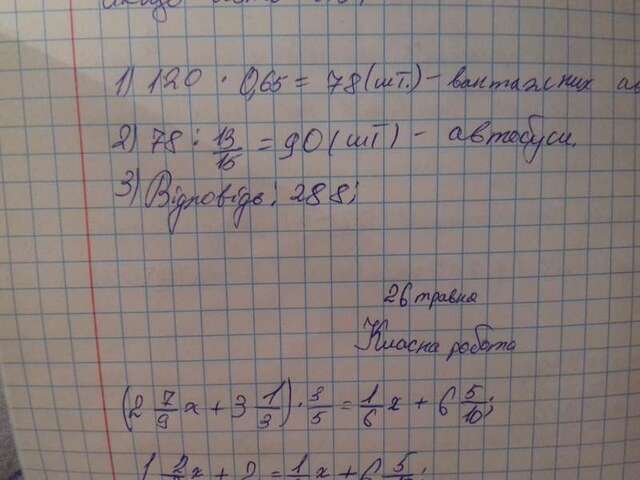 1) 120 · 0,65 = 78 (шт.) – вантажних ав
2) 78 : 13/15 = 90 (шт) – автобуси.
3) Відповідь: 288;
26 травня
Класна робота
(2 7/9 x + 3 1/3) · 3/5 = 1/6 x + 6 5/10;
x + 2 = x + 6